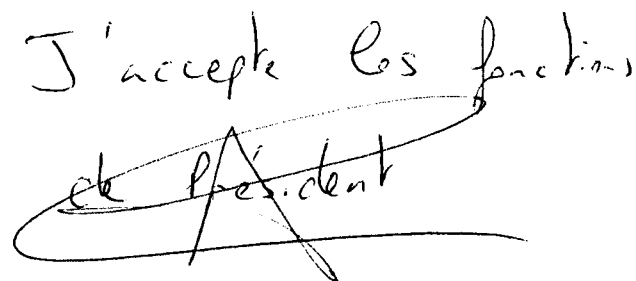 J'accepte les fonctions
de Président